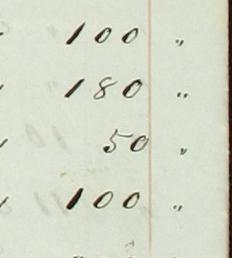 100 "
180 "
50 "
100 "